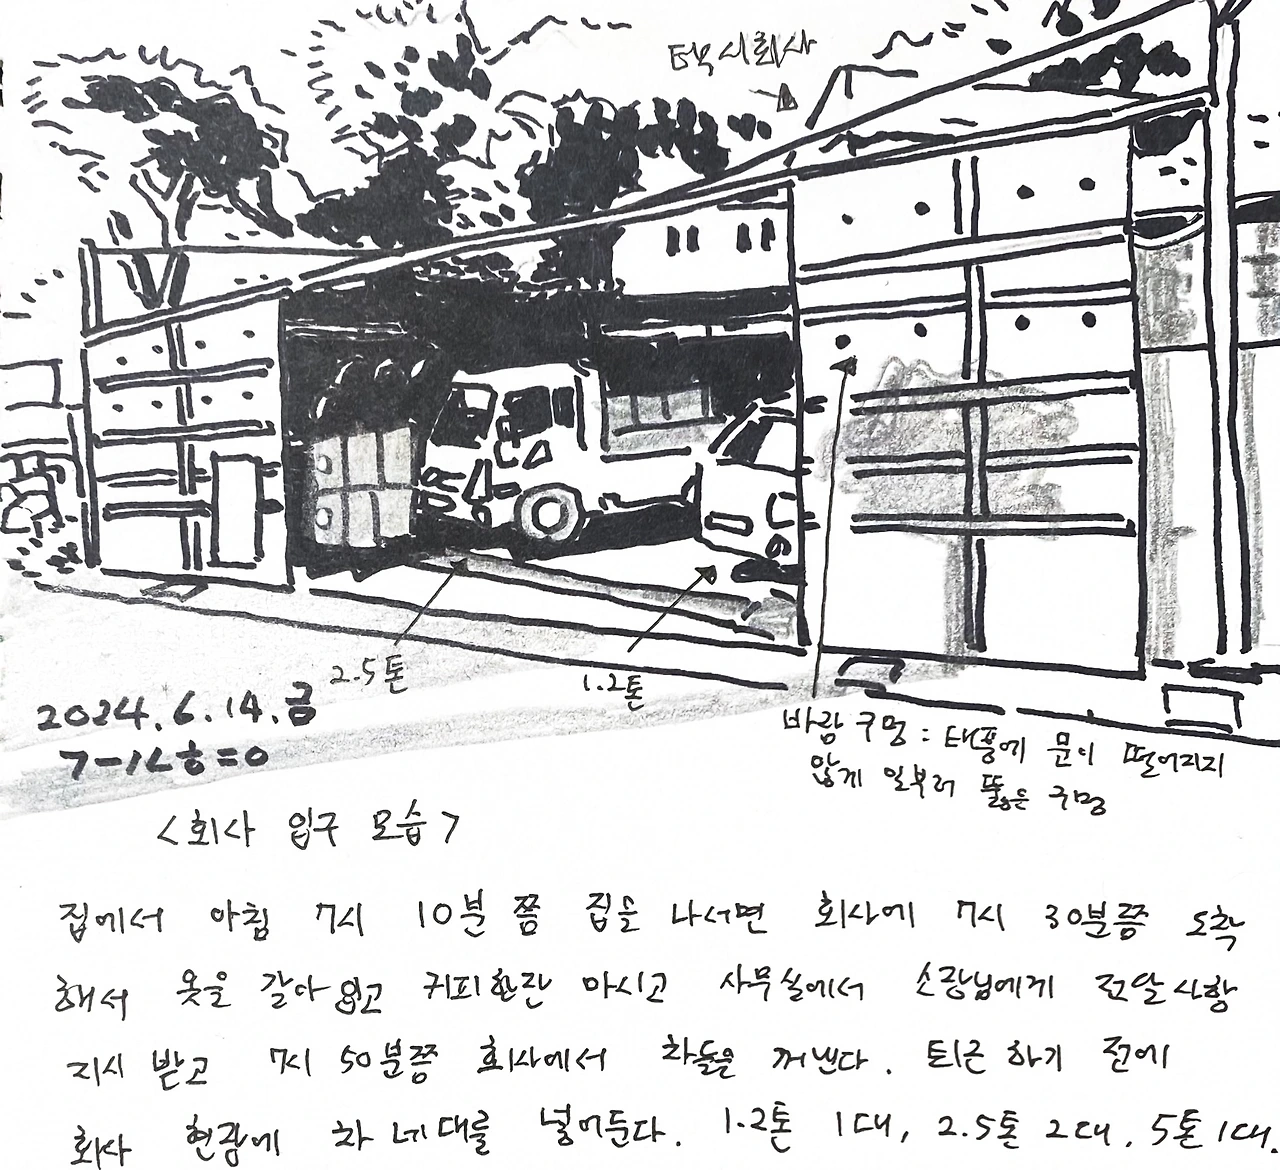 택시회사
2.5톤
1.2톤
2024.6.14.금
바람 구멍 : 태풍에 문이 떨어지지
않게 일부러 뚫은 구멍
<회사 입구 모습>
집에서 아침 7시 10분 쯤 집을 나서면 회사에 7시 30분쯤 도착
해서 옷을 갈아 입고 커피한잔 마시고 사무실에서 소장님에게 전달사항
지시 받고 7시 50분쯤 회사에서 차들을 꺼낸다. 퇴근 하기 전에
회사 현장에 차 네대를 넣어둔다. 1.2톤 1대, 2.5톤 2대. 5톤 1대.